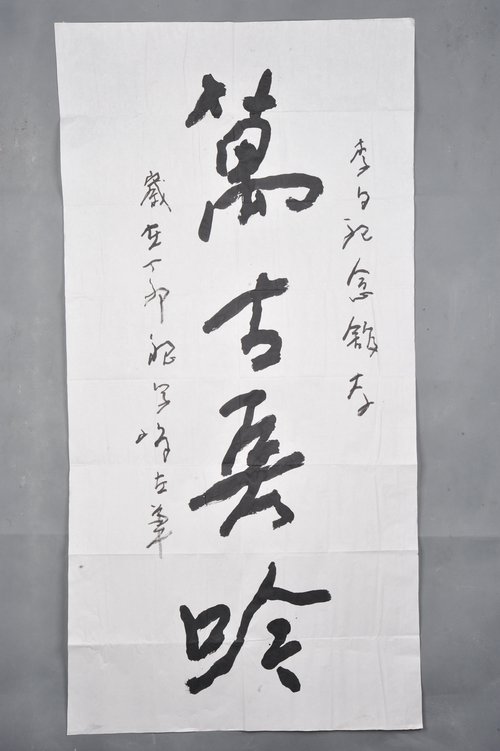 李白紀念館存
萬古長吟
歲在丁卯 学峰左筆